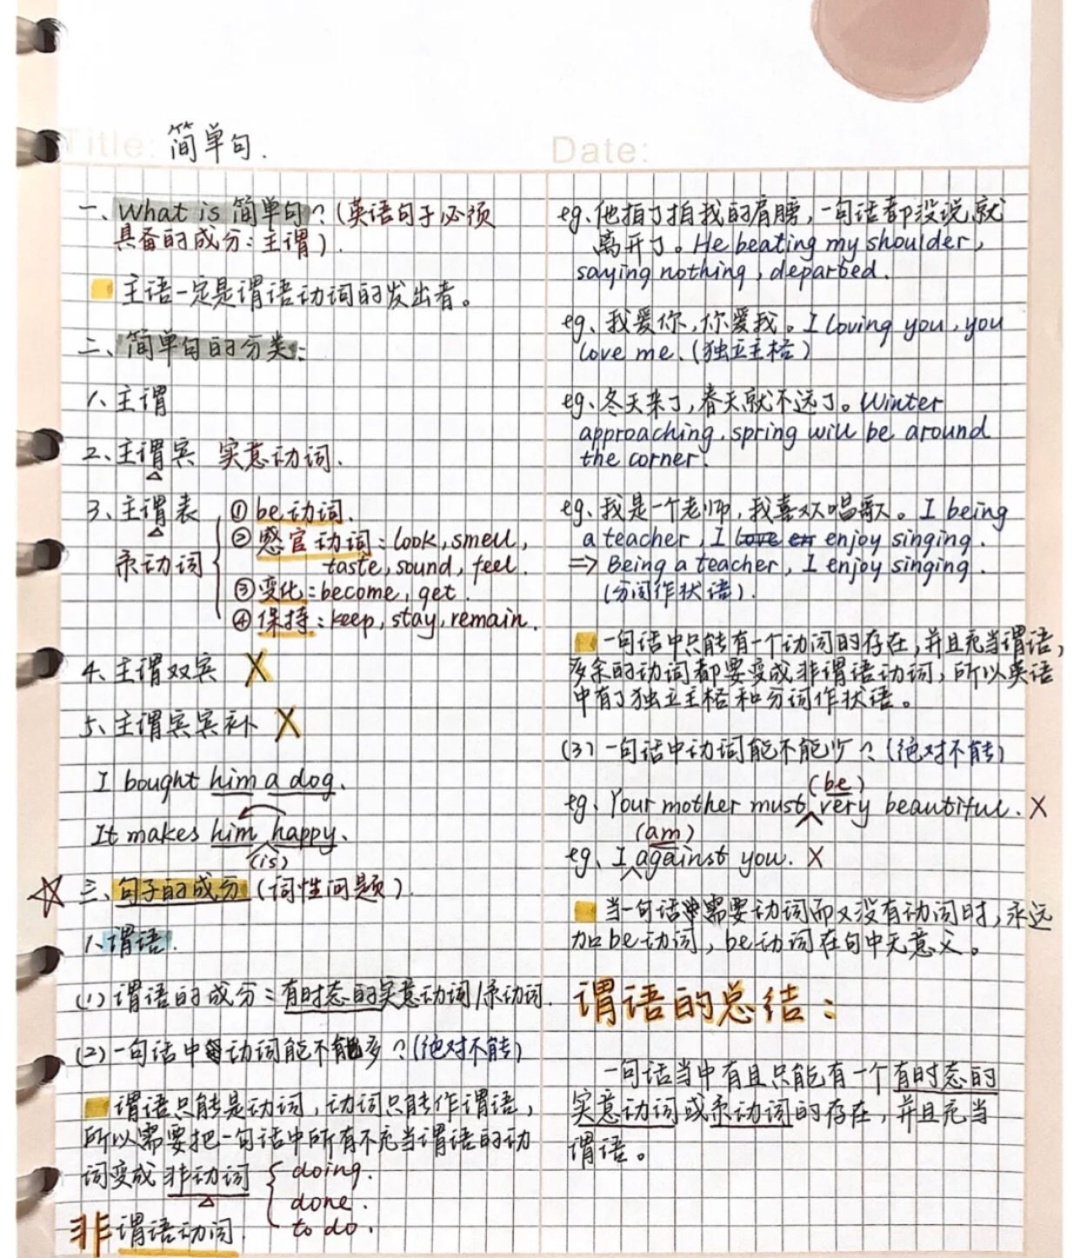 Title: 简单句.
Date:
一、What is 简单句?(英语句子必须
具备的成分:主谓).
主语一定是谓语动词的发出者。
二、简单句的分类:
1、主谓
2、主谓宾 实意动词.
3、主谓表 ① be动词.
② 感官动词:look,smell,
系动词 taste,sound,feel.
③ 变化:become,get.
④ 保持:keep,stay,remain.
4、主谓双宾 X
5、主谓宾宾补 X
I bought him a dog.
It makes him happy.
(is)
三、句子的成分(词性问题).
1、谓语.
(1)谓语的成分:有时态的实意动词/系动词.
(2)一句话中动词能不能多?(绝对不能)
谓语只能是动词,动词只能作谓语,
所以需要把一句话中所有不充当谓语的动
词变成非动词 doing.
done.
非谓语动词. to do.
eg、他拍了拍我的肩膀,一句话都没说,就
离开了。He beating my shoulder,
saying nothing, departed.
eg、我爱你,你爱我。I loving you, you
love me.(独立主格)
eg、冬天来了,春天就不远了。Winter
approaching, spring will be around
the corner.
eg、我是一个老师,我喜欢唱歌。I being
a teacher, I enjoy singing.
=> Being a teacher, I enjoy singing.
(分词作状语).
一句话中只能有一个动词的存在,并且充当谓语,
多余的动词都要变成非谓语动词,所以英语
中有了独立主格和分词作状语。
(3)一句话中动词能不能少?(绝对不能)
(be)
eg、Your mother must very beautiful. X
(am)
eg、I against you. X
当一句话需要动词而又没有动词时,永远
加be动词,be动词在句中无意义。
谓语的总结:
一句话当中有且只能有一个有时态的
实意动词或系动词的存在,并且充当
谓语。